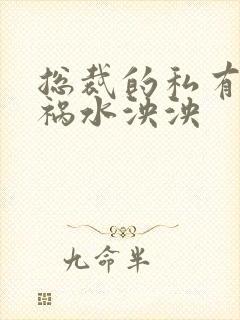 总裁的私有
祸水泱泱
九命半